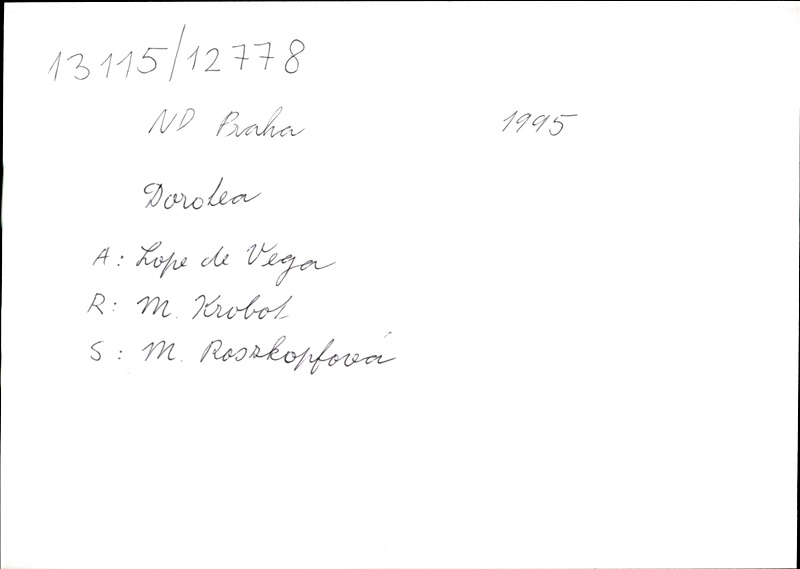 13115/12778
ND Praha 1995
Dorotea
A: Lope de Vega
R: M. Krobot
S: M. Roszkopfová